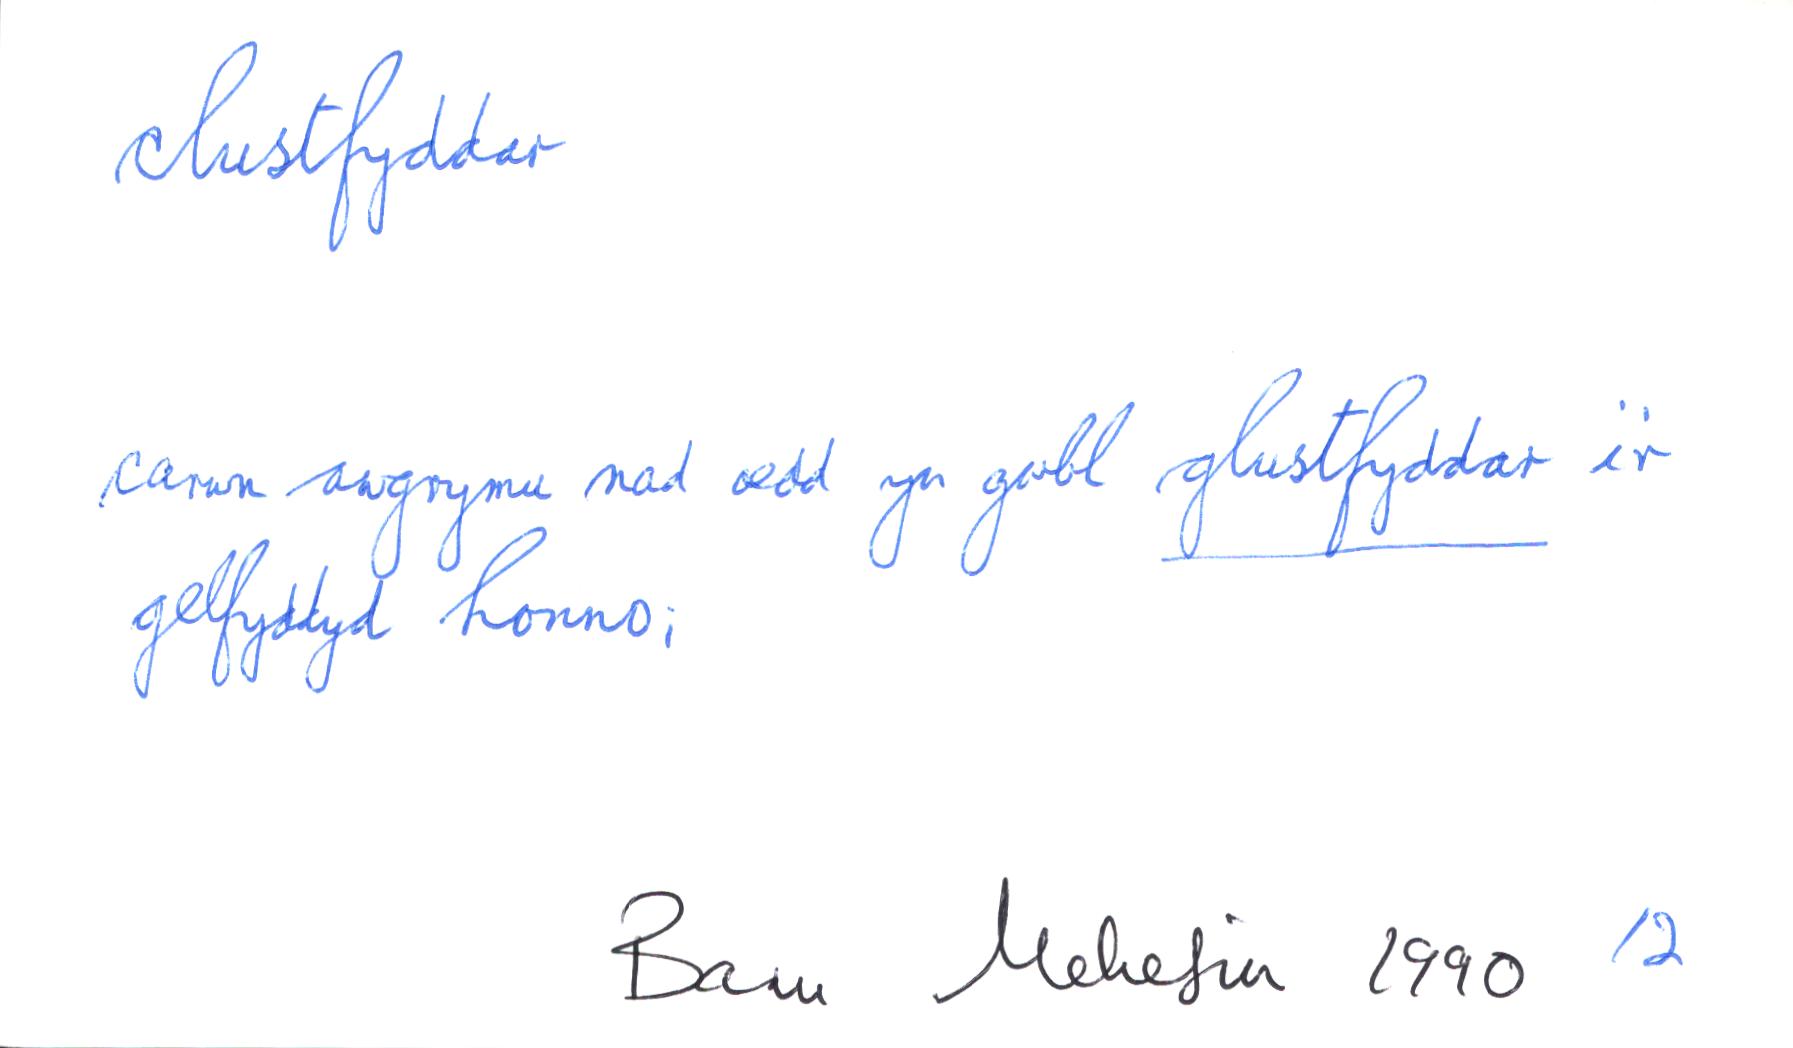 clustfyddar
carwn awgrymu nad oedd yn gwbl glustfyddar i'r
gelfyddyd honno;
Barn Mehefin 1990 12